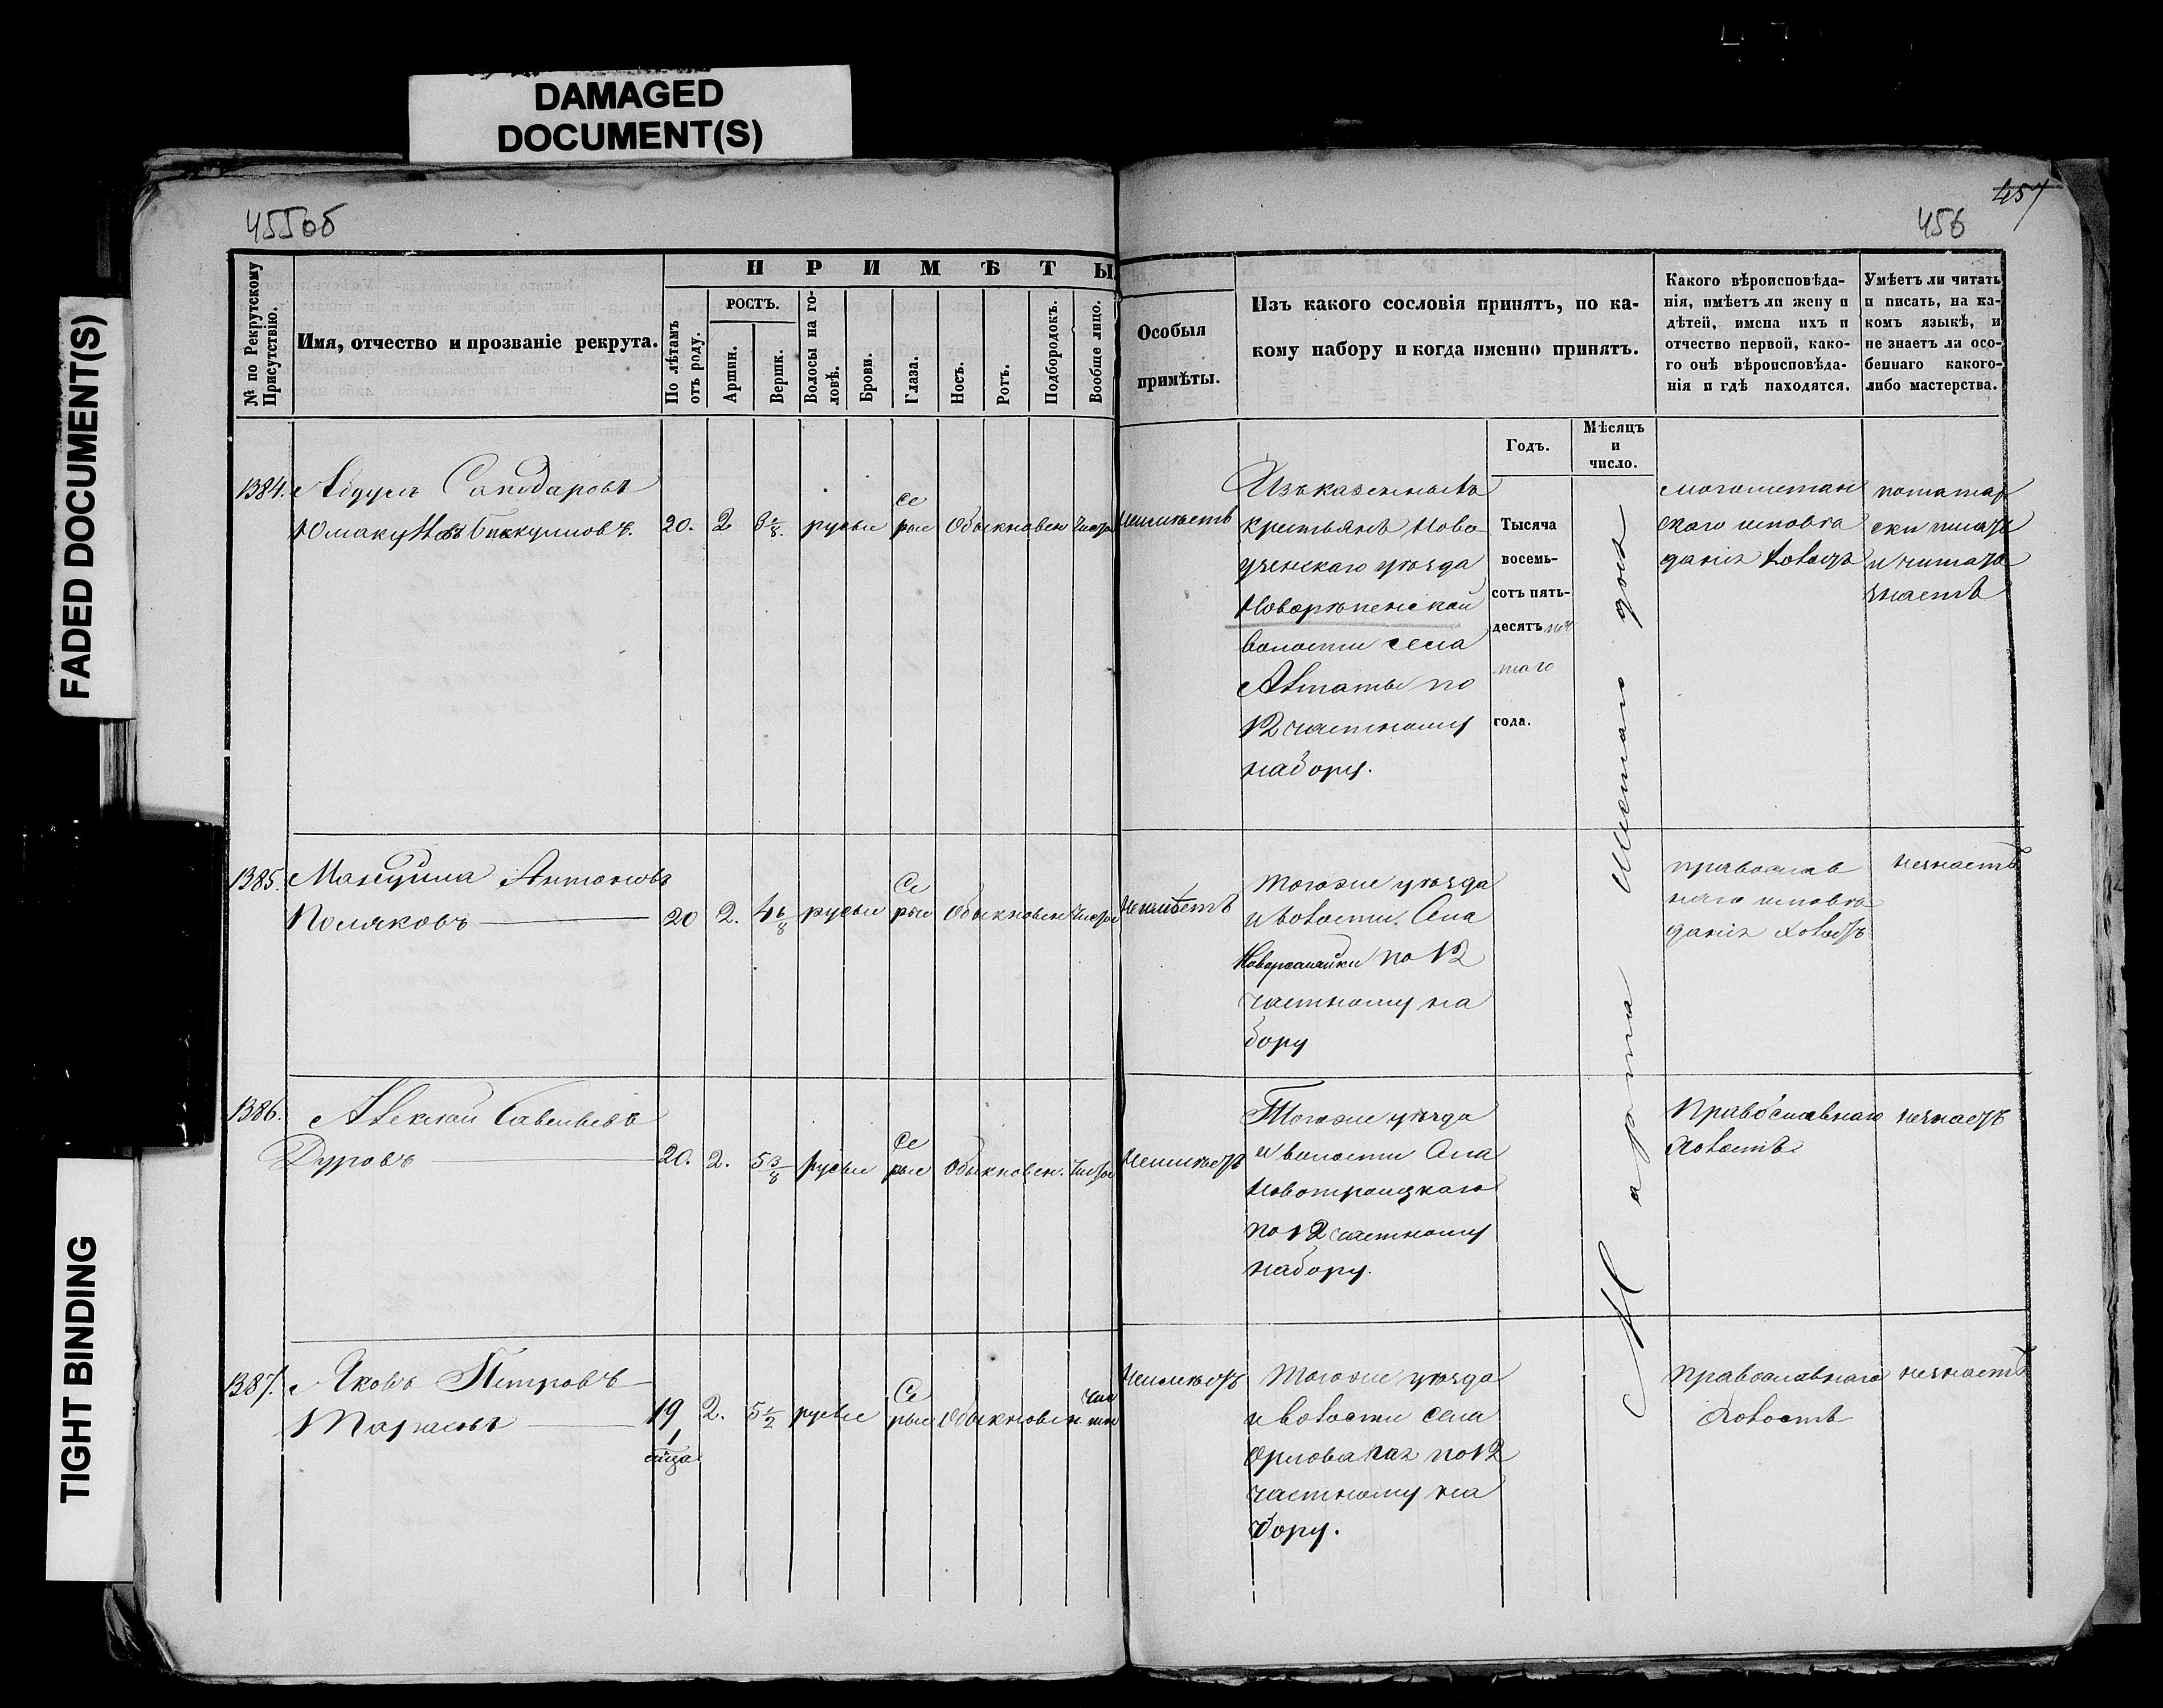 DAMAGED
DOCUMENT(S)
FADED DOCUMENT(S)
TIGHT BINDING
455об
457
456
№ по Рекрутскому
Присутствію.
Имя, отчество и прозваніе рекрута.
ПРИМѢТЫ
По лѣтамъ
отъ роду.
РОСТЪ.
Аршин.
Вершк.
Волосы на го-
ловѣ.
Брови.
Глаза.
Носъ.
Ротъ.
Подбородокъ.
Вообще лицо.
Особыя
примѣты.
Изъ какого сословія принятъ, по ка-
кому набору и когда именно принятъ.
Годъ.
Мѣсяцъ
и
число.
Какого вѣроисповѣда-
нія, имѣетъ ли жену и
дѣтей, имена ихъ и
отчество первой, како-
го онѣ вѣроисповѣда-
нія и гдѣ находятся.
Умѣетъ ли читать
и писать, на ка-
комъ языкѣ, и
не знаетъ ли осо-
беннаго какого-
либо мастерства.
1384.
20. 2 русые
Се
рые
Обыкновен
Неимѣетъ
Изъ казенныхъ
крестьянъ Ново-
узенскаго уѣзда
Новорѣпенской
волости села
Алтаты по
12 частному
набору.
Тысяча
восемь-
сотъ пять-
десятъ пя
таго
года.
Марта Шестаго дня
могометан
скаго исповѣ
данія холостъ
потатар
ски писать
и читать
знаетъ
1385. Антоновъ
Поляковъ
20 2. 4 6/8 русые
Се
рые
Обыкновен
Неимѣетъ
Тогоже уѣзда
и волости Села
по 12
частному на
бору
православ
наго исповѣ
данія холостъ
незнаетъ
1386.
Алексѣй Савельевъ
Дуровъ
20. 2. 5 3/8 русые
Се
рые
Обыкновен.
Неимѣетъ
Тогоже уѣзда
и волости Села
Новотроицкаго
по 12 частному
набору.
Православнаго
холостъ
незнаетъ
1387. Яковъ Петровъ
Тарасовъ
19
2. 5 1/2 русые
Се
рые
Обыкновен
чис
тое
Неимѣетъ
Тогоже уѣзда
и волости села
Орлова Гая по 12
частному на
бору.
Православнаго
холостъ
незнаетъ